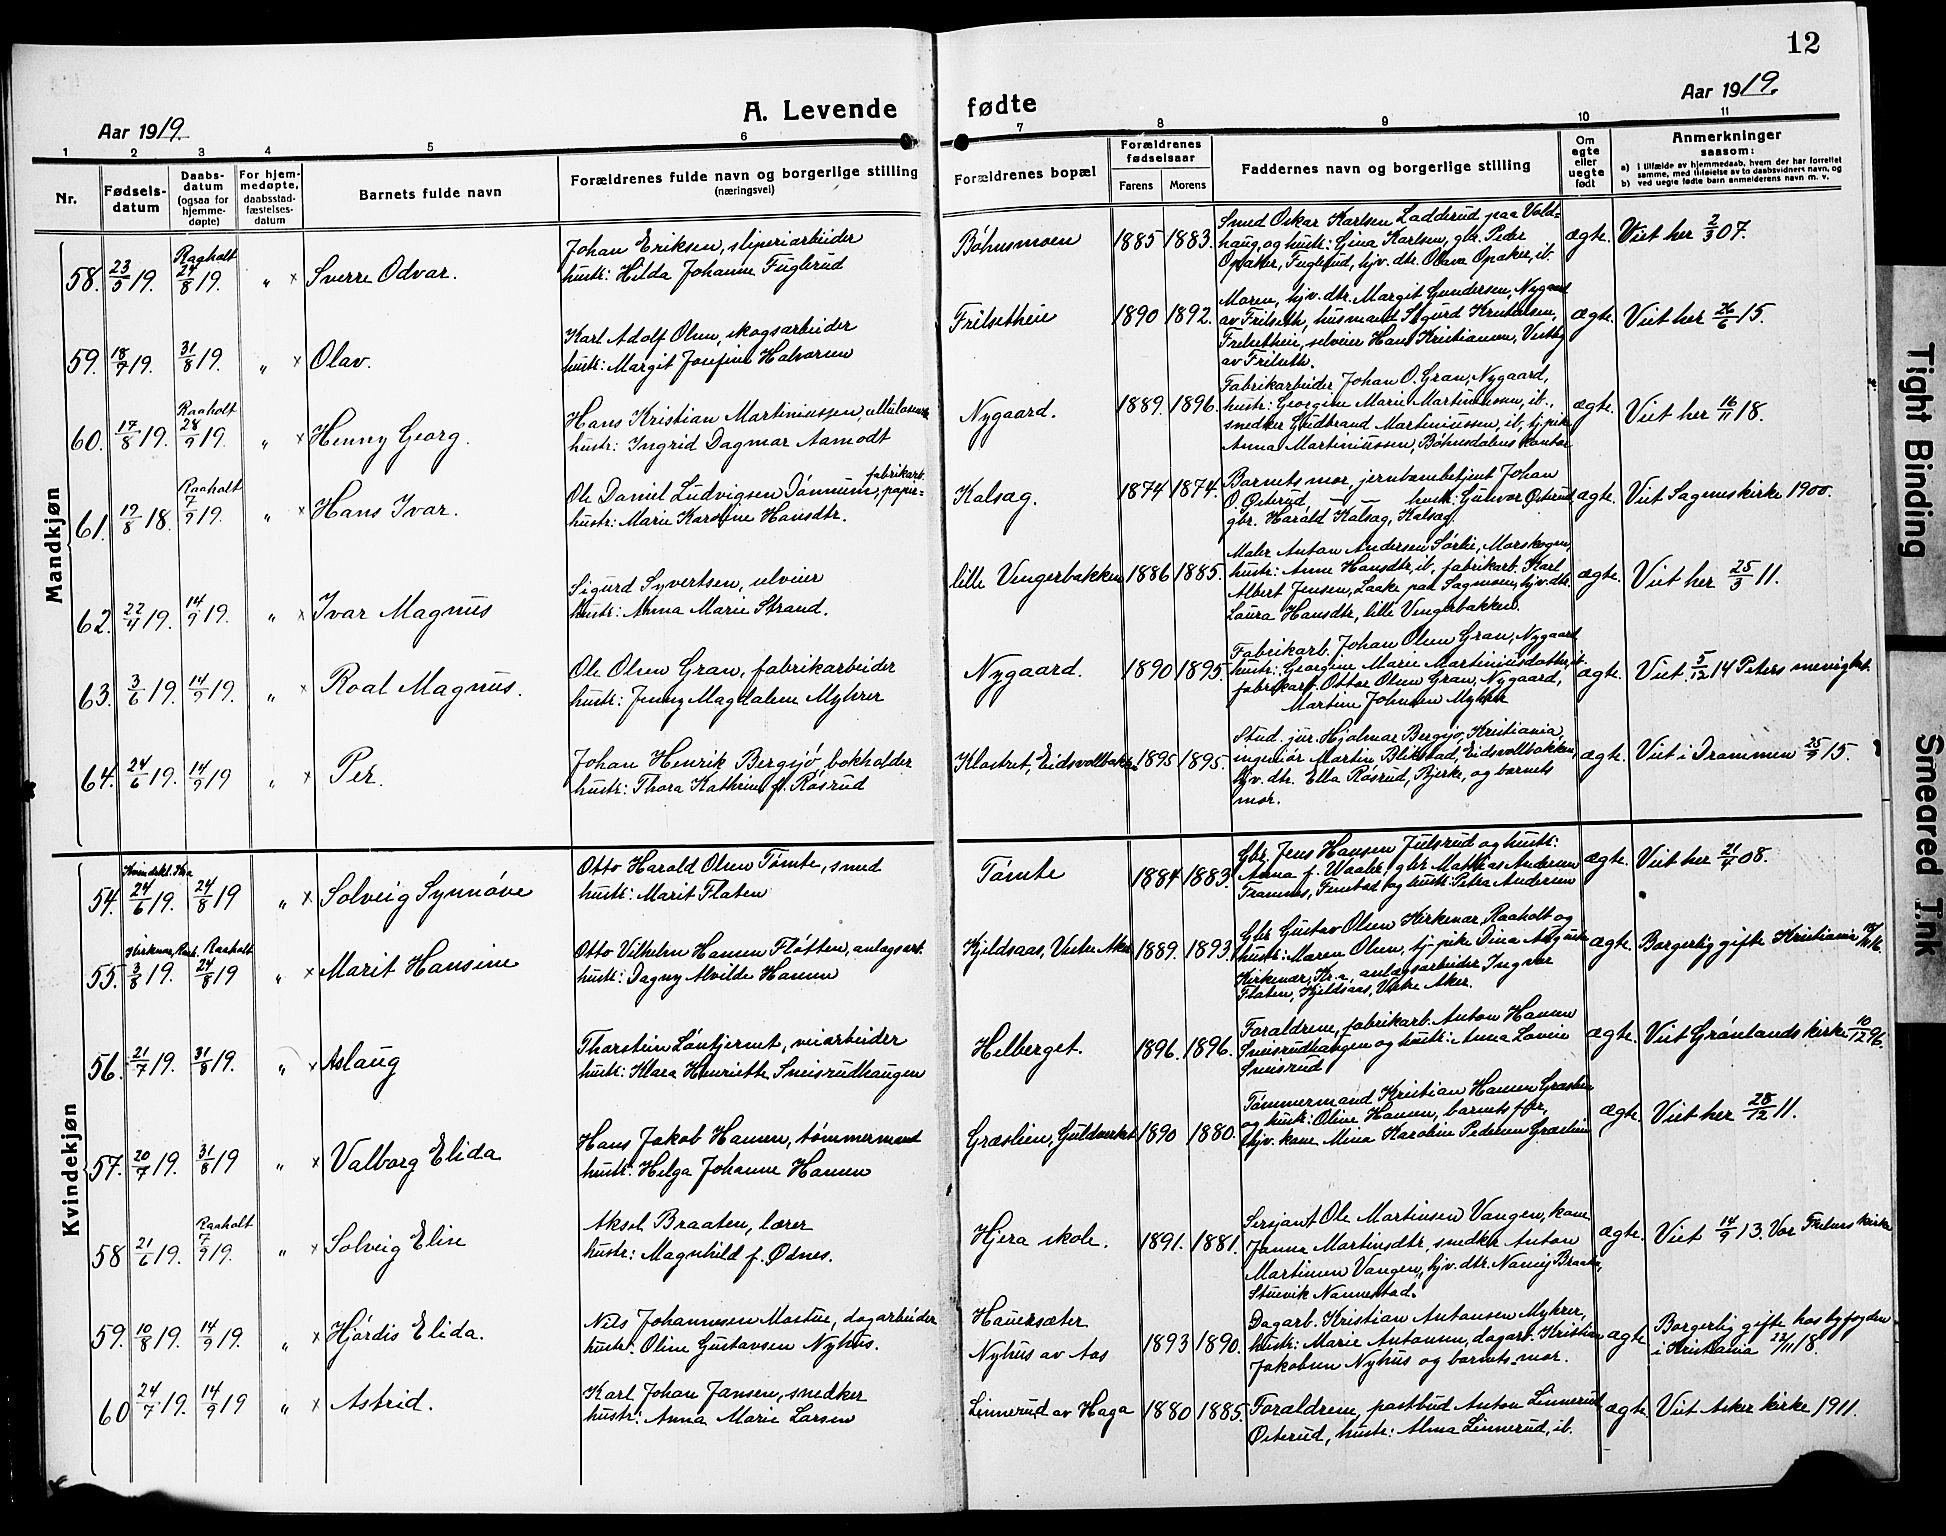 12
Aar 1919.
A. Levende fødte
Aar 1919.
1 2 3 4 5 6 7 8 9 10 11
Nr.
Fødselsdatum
Daabsdatum (ogsaa for hjemmedøpte)
For hjemmedøpte, daabsstadfæstelsesdatum
Barnets fulde navn
Forældrenes fulde navn og borgerlige stilling
(næringsvei)
Forældrenes bopæl
Forældrenes fødselsaar
Farens Morens
Faddernes navn og borgerlige stilling
Om egte eller uegte født
Anmerkninger
saasom:
a) i tilfælde av hjemmedaab, hvem der har forrettet samme, med tilføielse av to daabsvidners navn, og
b) ved uegte fødte barn anmelderens navn m. v.
Mandkjøn
58. 23/5 19. Raaholt 24/8 19. " x Sverre Odvar.
Johan Eriksen, sliperiarbeider
hustr: Hilda Johanne Fuglerud
Bøhnsmoen 1885 1883.
Smed Oskar Karlsen Ladderud paa Vold-
haug, og hustr: Gina Karlsen, gbr. Peder
Opaker, Fuglerud, hjv. dtr. Olava Opaker, ib.
ægte. Viet her 2/3 07.
59. 18/7 19. 31/8 19. " x Olav.
Karl Adolf Olsen, skogsarbeider
hustr: Margit Josefine Halvorsen
Frilsetheie 1890 1892.
Maren, hjv. dtr. Margit Gundersen, Nygaard
av Frilseth, husmand Sigurd Knutelsen,
Frilsetheie, selveier Hans Kristiansen, Vestby
av Frilseth.
ægte. Viet her 26/6 15.
60. 17/8 19. Raaholt 28/9 19. " x Henny Georg.
Hans Kristian Martiniussen,
hustr: Ingrid Dagmar Aamodt
Nygaard. 1889. 1896.
Fabrikarbeider Johan O. Gran, Nygaard,
hustr: Georgine Marie Martiniussen, ib.,
snedker Gudbrand Martiniussen, ib, tj. pike
Anna Martiniussen, Bøhnsdalens kontor
ægte. Viet her 16/11 18.
61. 19/8 18. Raaholt 7/9 19. " x Hans Ivar.
Ole Daniel Ludvigsen Dønnum, papir-fabrikarb.
hustr: Marie Karoline Hansdtr.
Kalsæg. 1874 1874.
Barnets mor, jernbanebetjent Johan
O. Osterud, hustr: Gulvor Osterud
gbr. Harald Kalsæg, Kalsæg.
ægte. Viet Sagnes kirke 1900.
62. 22/4 19. 14/9 19. " x Ivar Magnus
Sigurd Syvertsen, selveier
hustr: Anna Marie Strand.
lille Vengerbakken 1886 1885.
Maler Anton Andersen Sørlie, Morskogen,
hustr: Anne Hansdtr, ib, fabrikarb. Karl
Albert Jensen, Laake paa Sagmoen, hjv. dtr.
Laura Hansdtr, lille Vengerbakken.
ægte. Viet her 25/3 11.
63. 3/6 19. 14/9 19. " x Roal Magnus.
Ole Olsen Gran, fabrikarbeider
hustr: Jenny Magdalene Myhrer
Nygaard. 1890 1895.
Fabrikarb. Johan Olsen Gran, Nygaard
hustr: Georgine Marie Martiniusdatter, ib.
fabrikarb. Ottar Olsen Gran, Nygaard,
Martine Johnsen Myhrer
ægte. Viet 5/12 14 Peters menighet.
64. 24/6 19. 14/9 19 " x Per.
Johan Henrik Bergsjø, bokholder
hustr: Thora Kathrine f. Røsrud
Klostret, Eidsvollbakken 1895 1895.
Stud. jur. Hjalmar Bergsjø, Kristiania,
ingeniør Martin Blikstad, Eidsvollbakken,
hjv. dtr. Ella Røsrud, Bjerke, og barnets
mor.
ægte. Viet i Drammen 25/9 15.
Kvindekjøn
54. Kvindekl. Kra 24/6 19. 24/8 19 " x Solveig Synnøve
Otto Harald Olsen Tømte, smed
hustr: Marit Flaten
Tømte 1884 1883.
Gbr. Jens Hansen Julsrud og hustr:
Anna f. Waaler, gbr. Mathias Andersen
Tramnes, Finstad og hustr: Petra Andersen
ægte. Viet her 21/4 08.
55. Kirkenær, Raah. 3/8 19. Raaholt 24/8 19 " x Marit Hansine
Otto Vilhelm Hansen Fløtten, anlægsarb.
hustr: Dagny Alvilde Hansen
Kjeldsaas, Vestre Aker 1889. 1893.
Gbr. Gustav Olsen Kirkenær, Raaholt og
hustr: Maren Olsen, tj. pike Dina Auguste
Kirkenær, Kr.a, anlægsarbeider Ingvar
Flaten, Kjeldsaas, Vestre Aker.
ægte. Borgerlig gifte Kristiania
56. 21/7 19. 31/8 19. " x Aslaug
Thorstein Løntjernet, veiarbeider
hustr: Klara Henriette Sneisrudhaugen
Helberget. 1896. 1896.
Forældrene, fabrikarb. Anton Hansen
Sneisrudhaugen og hustr: Anna Lovise
Sneisrud
ægte. Viet Grønlands kirke 10/12 96.
57. 20/7 19. 31/8 19 " x Valborg Elida
Hans Jakob Hansen, tømmermand
hustr: Helga Johanne Hansen
Græslien, Guldverket 1890 1880.
Tømmermand Kristian Hansen Græslien
og hustr: Oline Hansen, barnets far,
hjv. kone Mina Karoline Pedersen Græslien
ægte. Viet her 28/12 11.
58 21/6 19. Raaholt 7/9 19. " x Solveig Elise
Aksel Braaten, lærer
hustr: Magnhild f. Ødnes.
Hjera skole. 1891. 1881.
Sersjant Ole Martinsen Vangen, kone
Janna Martinsdtr, snedker Anton
Martinsen Vangen, hjv. dtr. Nanny Braaten,
Stuevik Nannestad.
ægte. Viet 14/9 13. Vor Frelsers kirke
59. 10/8 19. 14/9 19. " x Hjørdis Elida.
Nils Johannesen Mostue, dagarbeider
hustr: Oline Gustavsen Nyhus.
Hauersæter
Nyhus av Aas 1893 1890.
Dagarb. Kristian Antonsen Myhrer,
hustr: Marie Antonsen, dagarb. Kristian
Jakobsen Nyhus og barnets mor.
ægte. Borgerlig gifte hos byfogden
i Kristiania 22/11 18.
60 24/7 19. 14/9 19 " x Astrid.
Karl Johan Jansen, snedker
hustr: Anna Marie Larsen
Linnerud av Haga 1880 1885.
Forældrene, postbud Anton Linnerud
Østerud, hustr: Alma Linnerud, ib.
ægte. Viet Asker kirke 1911.
Tight Binding
Smeared Ink